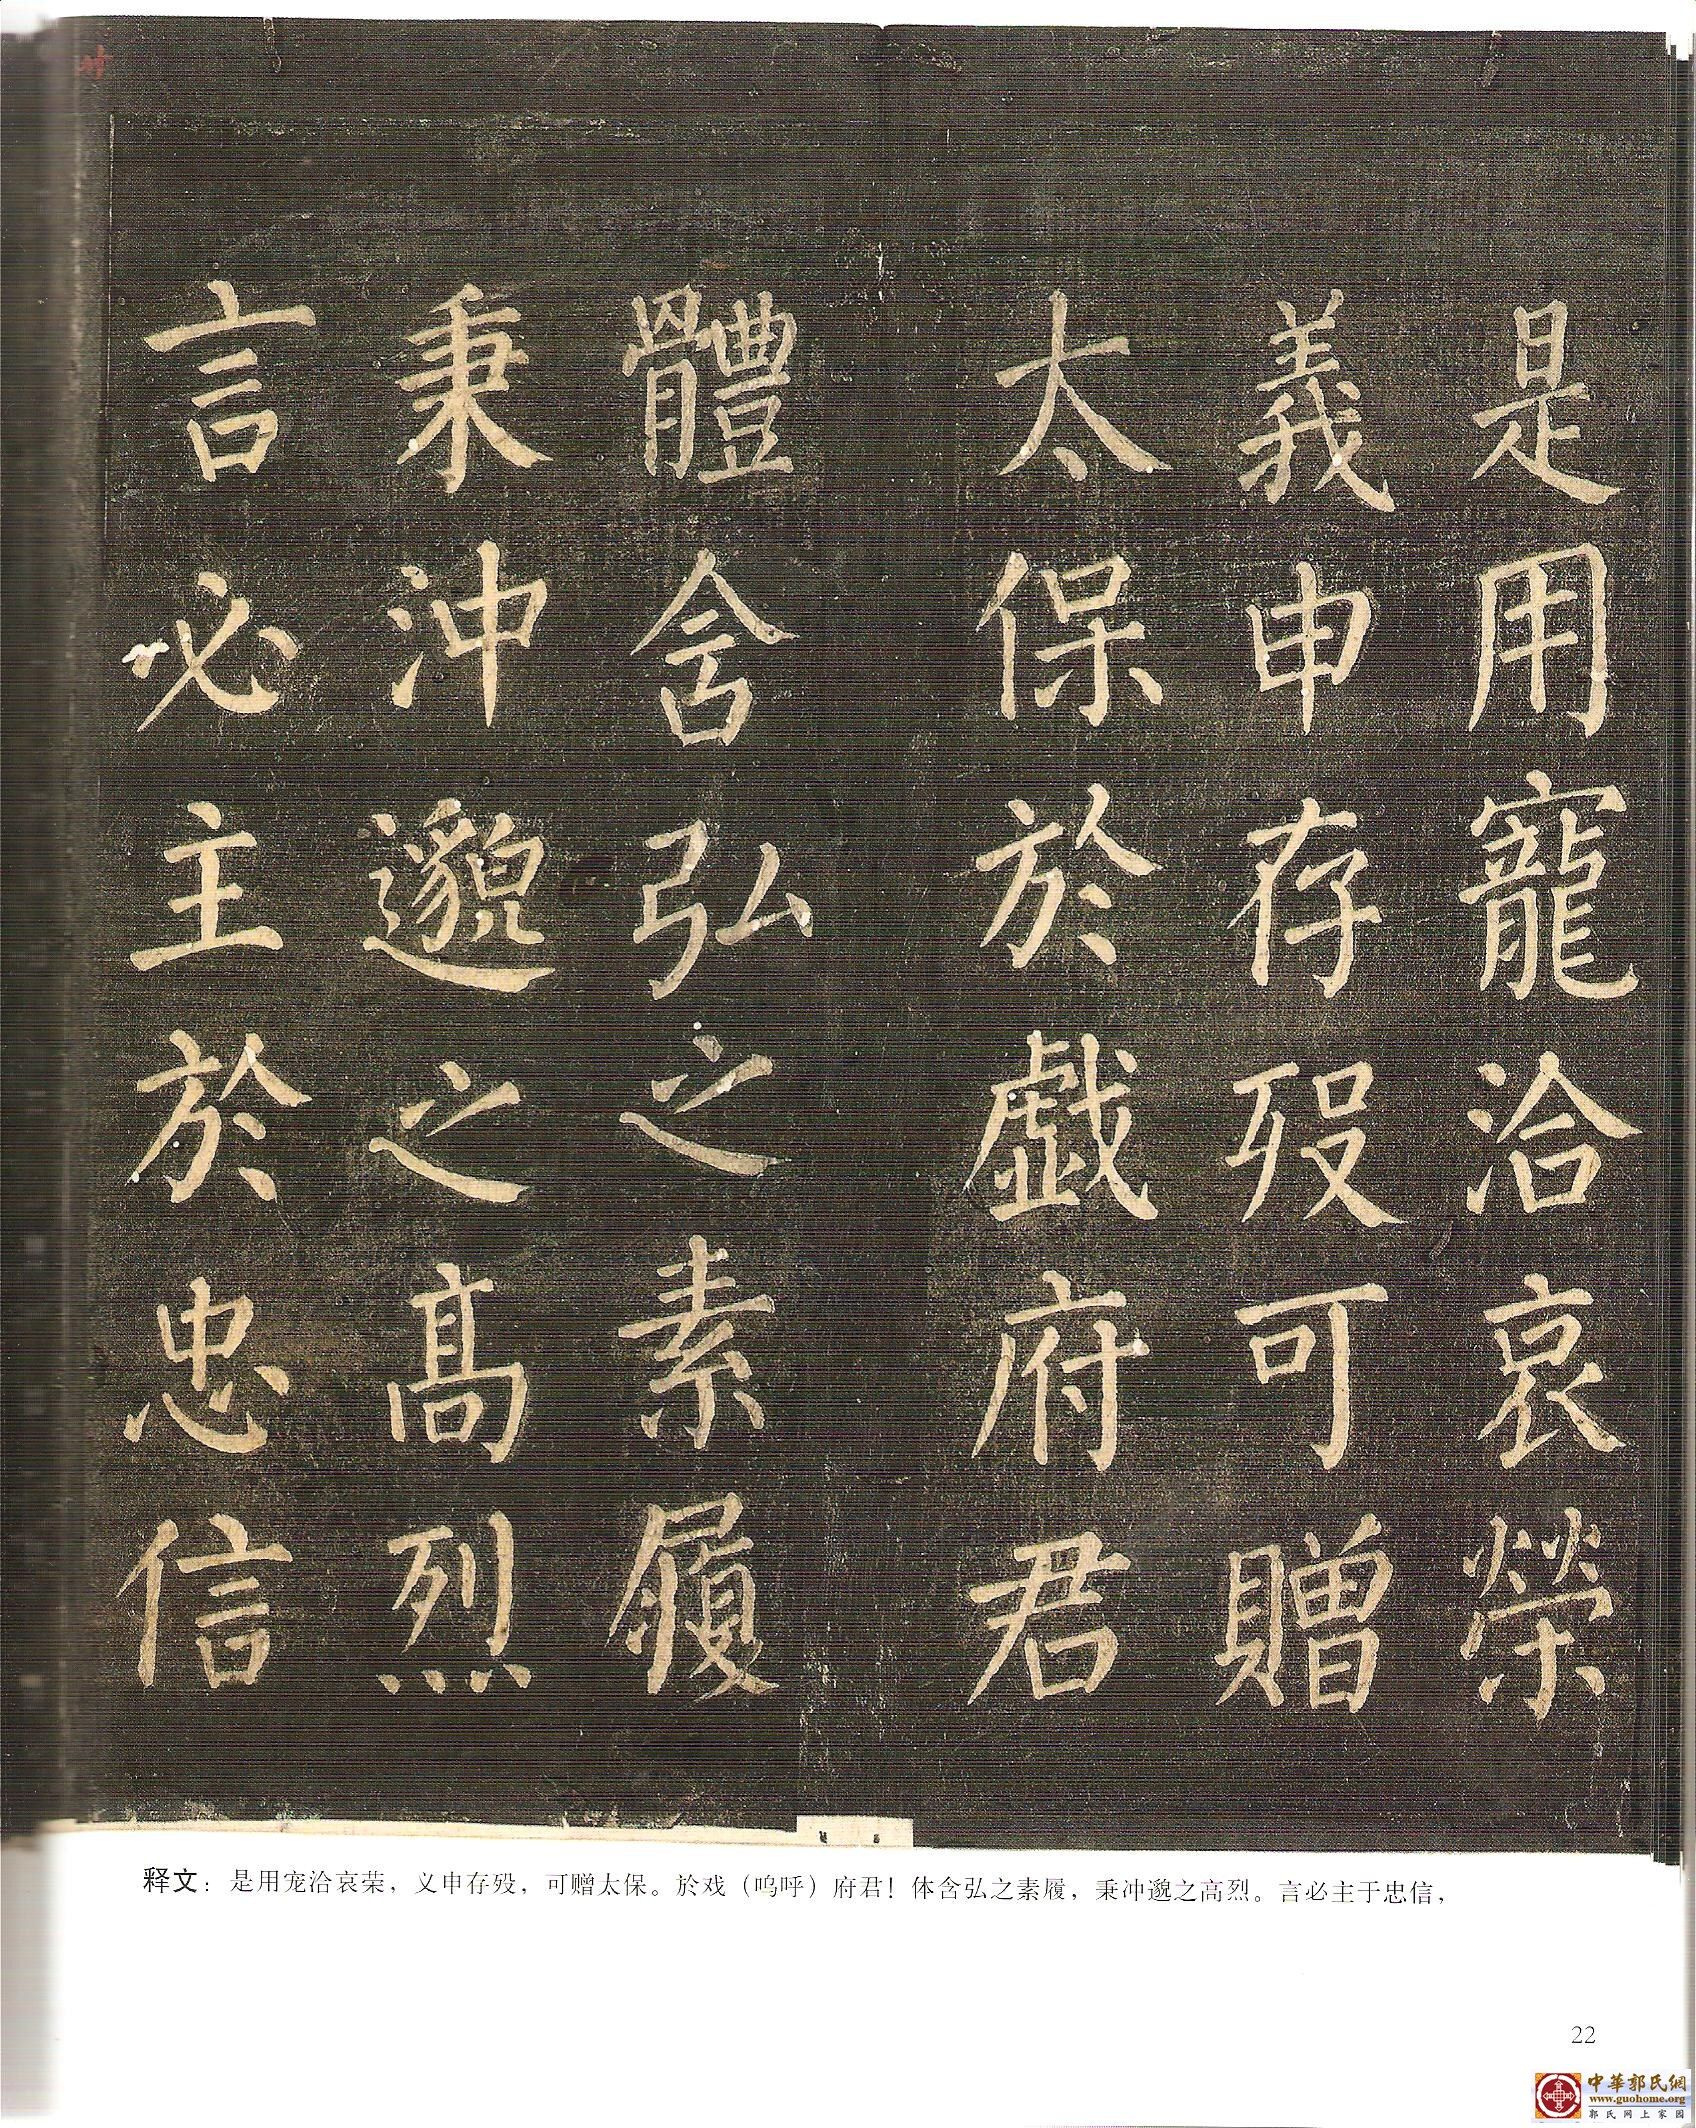 是用寵洽哀榮
義申存歿可贈
太保於戲府君
體含弘之素履
秉沖邈之高烈
言必主於忠信
释文：是用宠洽哀荣，义申存殁，可赠太保。於戏（呜呼）府君！体含弘之素履，秉冲邈之高烈。言必主于忠信，
22
中華郭氏網
www.guohome.org
郭氏网上家园